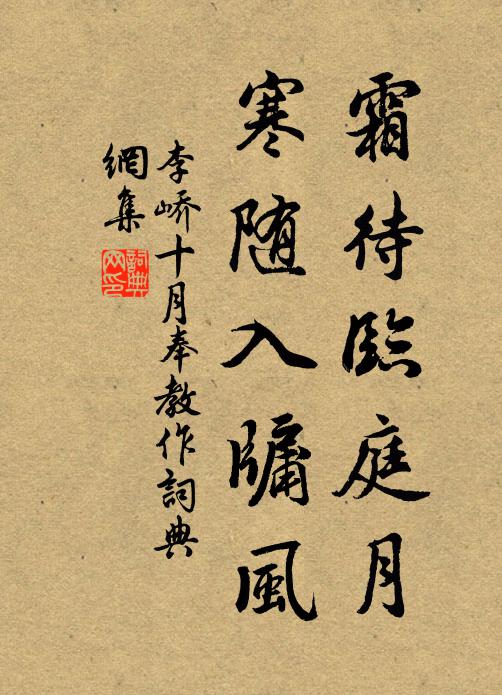 霜待臨庭月
寒随入牖風
李嶠十月奉教作詞典
網集
詞典
网印